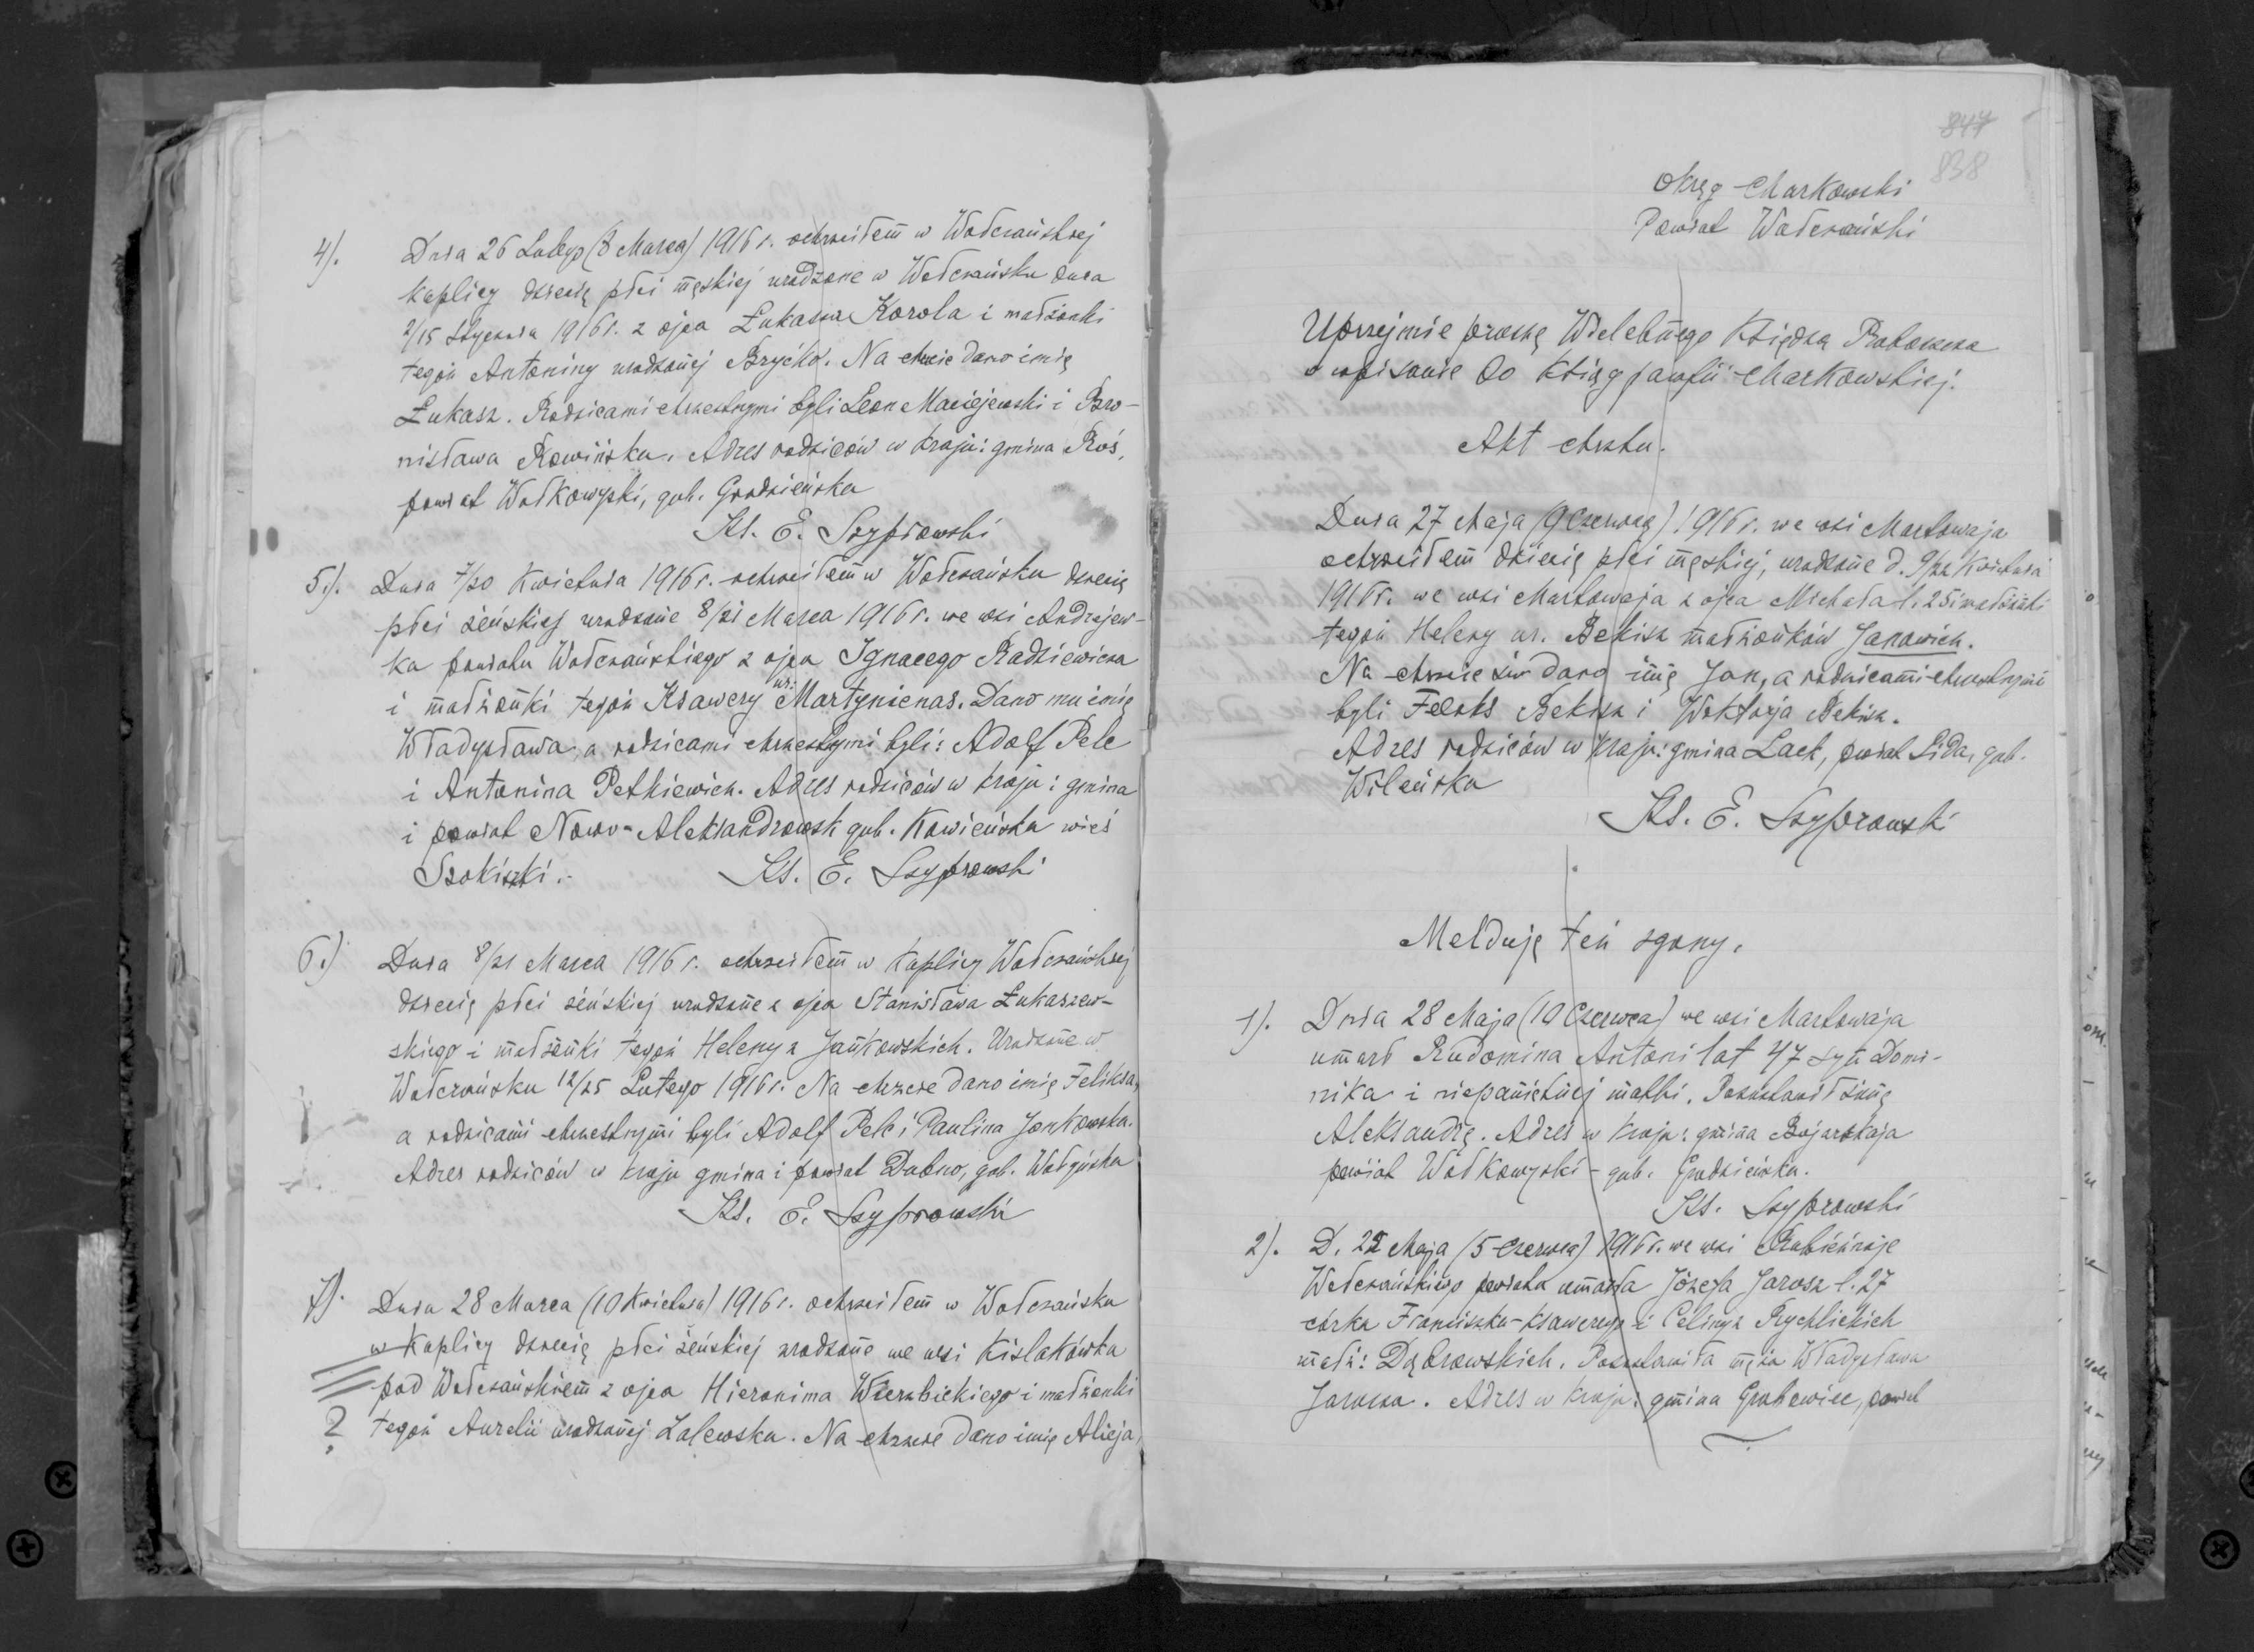 4). Dnia 26 Lutego (8 Marca) 1916 r. ochrzciłem w Wołczańskiej
kaplicy dziecię płci męskiej urodzone w Wołczańsku dnia
2/15 Stycznia 1916 r. z ojca Łukasza Korola i małżonki
tegoż Antoniny urodzonej Bryćko. Na chrzcie dano imię
Łukasz. Rodzicami chrzestnymi byli Leon Maciejewski i Bro-
nisława Rowińska. Adres rodziców w kraju: gmina Roś,
powiat Wołkowyski, gub. Grodzieńska
Ks. E. Szyprowski
5). Dnia 7/20 Kwietnia 1916 r. ochrzciłem w Wołczańsku dziecię
płci żeńskiej urodzone 8/21 Marca 1916 r. we wsi Andrejew-
ka powiatu Wołczańskiego z ojca Ignacego Radziewicza
i małżonki tegoż Ksawery ur. Martynienas. Dano mu imię
Władysława, a rodzicami chrzestnymi byli: Adolf Pele
i Antonina Petkiewicz. Adres rodziców w kraju: gmina
i powiat Nowo-Aleksandrowsk gub. Kowieńska wieś
Szokiszki.
Ks. E. Szyprowski
6.) Dnia 8/21 Marca 1916 r. ochrzciłem w kaplicy Wołczańskiej
dziecię płci żeńskiej urodzone z ojca Stanisława Łukaszew-
skiego i małżonki tegoż Heleny z Jankowskich. Urodzone w
Wołczańsku 12/25 Lutego 1916 r. Na chrzcie dano imię Feliksa,
a rodzicami chrzestnymi byli Adolf Pele i Paulina Jankowska.
Adres rodziców w kraju gmina i powiat Dubno, gub. Wołyńska
Ks. E. Szyprowski
7). Dnia 28 Marca (10 Kwietnia) 1916 r. ochrzciłem w Wołczańsku
w Kaplicy dziecię płci żeńskiej urodzone we wsi Kislakówka
pod Wołczańskiem z ojca Hieronima Wierzbickiego i małżonki
? tegoż Aurelii urodzonej Zalewska. Na chrzcie dano imię Alicja,
847
838
Okręg Charkowski
Powiat Wołczański
Uprzejmie proszę Wielebnego Księdza Proboszcza
o wpisanie do ksiąg parafii Charkowskiej.
Akt chrztu.
Dnia 27 Maja (9 Czerwca) 1916 r. we wsi Martowaja
ochrzciłem dziecię płci męskiej, urodzone d. 9/22 Kwietnia
1916 r. we wsi Martowaja z ojca Michała l. 25 i małżonki
tegoż Heleny ur. Bekisz małżonków Janowicz.
Na chrzcie św dano imię Jan, a rodzicami chrzestnymi
byli Feliks Bekisz i Wiktorja Bekisz.
Adres rodziców w kraju: gmina Lack, powiat Lida, gub.
Wileńska
Ks. E. Szyprowski
Melduję też zgony.
1). Dnia 28 Maja (10 Czerwca) we wsi Martowaja
umarł Rudomina Antoni lat 47 syn Domi-
nika i niepamiętnej matki. Pozostawił żonę
Aleksandrę. Adres w kraju: gmina Bojarskaja
powiat Wołkowyski - gub. Grodzieńska.
Ks. Szyprowski
2). D. 22 Maja (5 Czerwca) 1916 r. we wsi Rubieżnoje
Wołczańskiego powiatu umarła Józefa Jarosz l. 27
córka Franciszka-Ksawerego i Celiny z Rychlickich
małż: Dąbrowskich. Pozostawiła męża Władysława
Jarosza. Adres w kraju: gmina Grabowiec, powiat